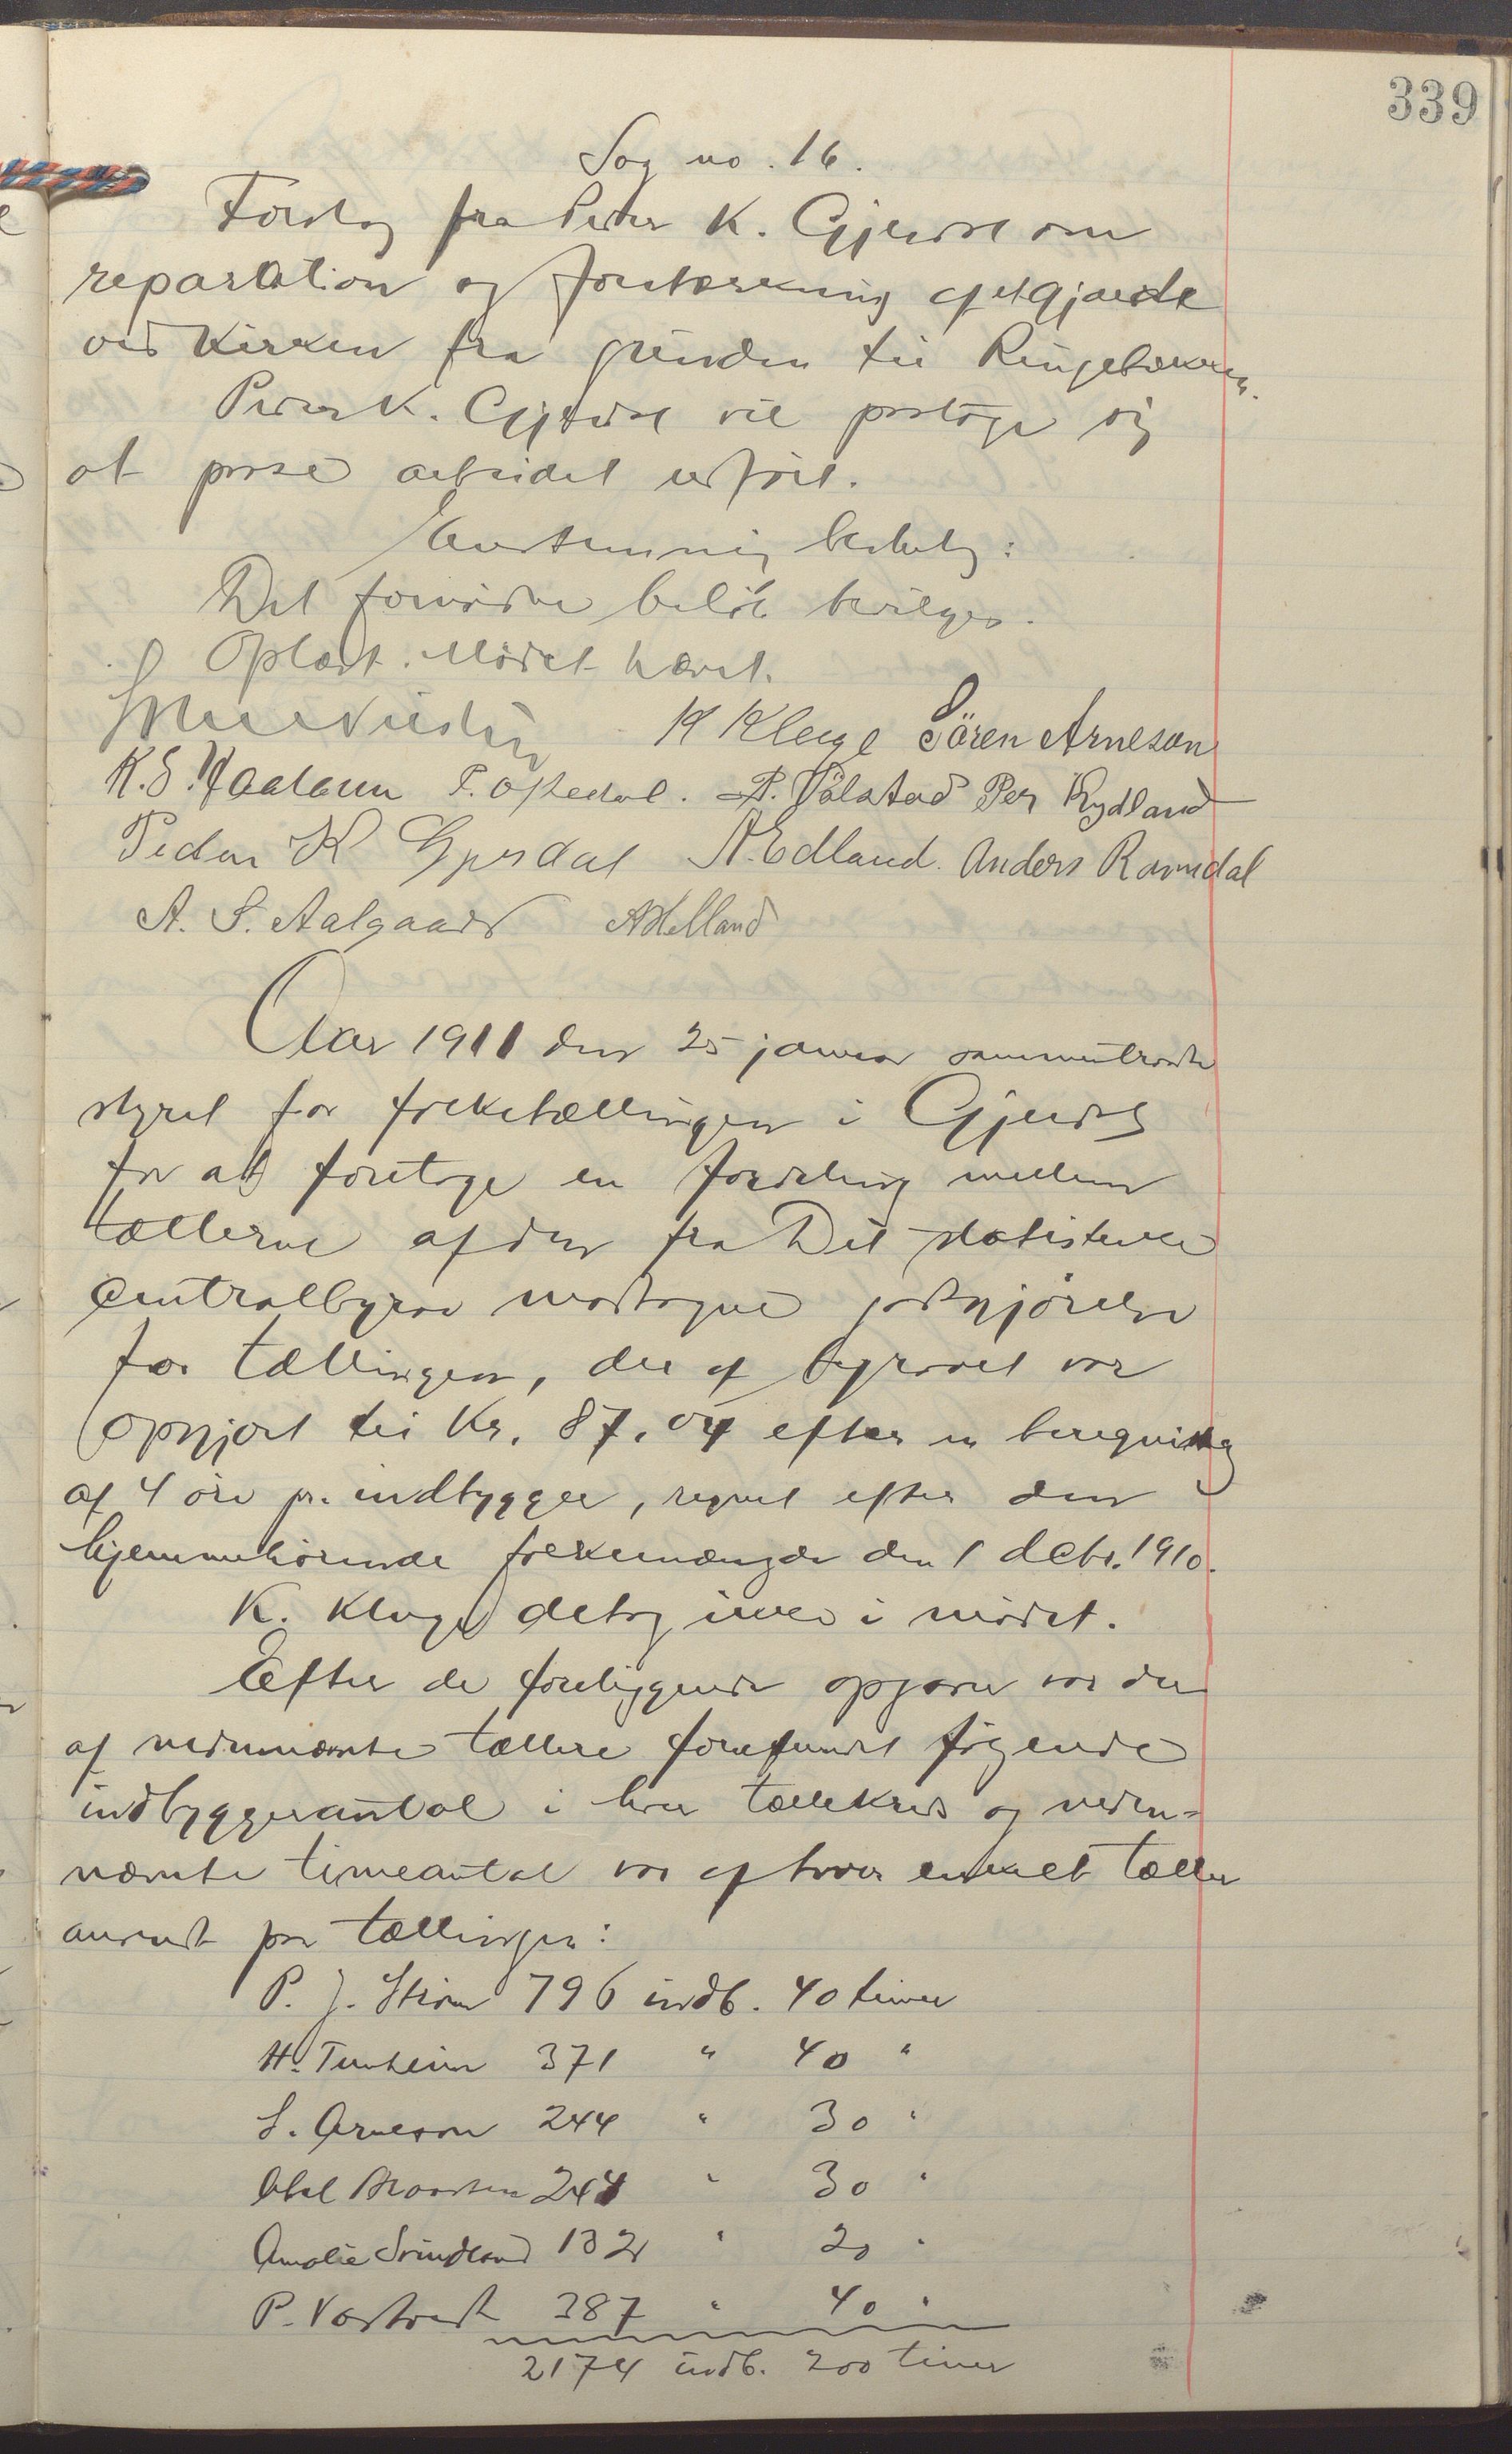 339
Sag no. 16.
Forslag fra Peder K. Gjesdal om
reparation og forsterkning af et gjærde
ved kirken fra grinden til
Peder K. Gjesdal vil paatage sig
at faa arbeidet udført.
Enstemmig beslutn:
Det fornødne beløb bevilges.
Oplæst. Mødet hævet.
K Kluge Sören Arneson
K. S. P. Opstedal. P. Vølstad Per Rydland
Peder K Gjesdal A. Edland. Anders Ravndal
A. S. Aalgaard A Helland
Aar 1911 den 25 januar sammentraadte
styret for folketællingen i Gjesdal
for at foretage en fordeling mellem
tællerne af den fra Det statistiske
Centralbyraa modtagne godtgjørelse
for tællingen, der af byraaet var
opgjort til Kr. 87.04 efter en beregning
af 4 øre pr. indbygger, regnet efter den
hjemmehørende folkemængde den 1 decbr. 1910.
K. Kluge deltog ikke i mødet.
Efter de foreliggende opgaver var der
af nedennævnte tællere forefundet følgende
indbyggerantal i hver tællekreds og neden-
nævnte timeantal var af hver enkelt tæller
anvendt paa tællingen:
P. J. Strøm 796 indb. 40 timer
H. Tunheim 371 " 40 "
S. Arneson 244 " 30 "
Abel 244 " 30 "
Amalie Svindland 132 " 20 "
P. 387 " 40 "
2174 indb. 200 timer